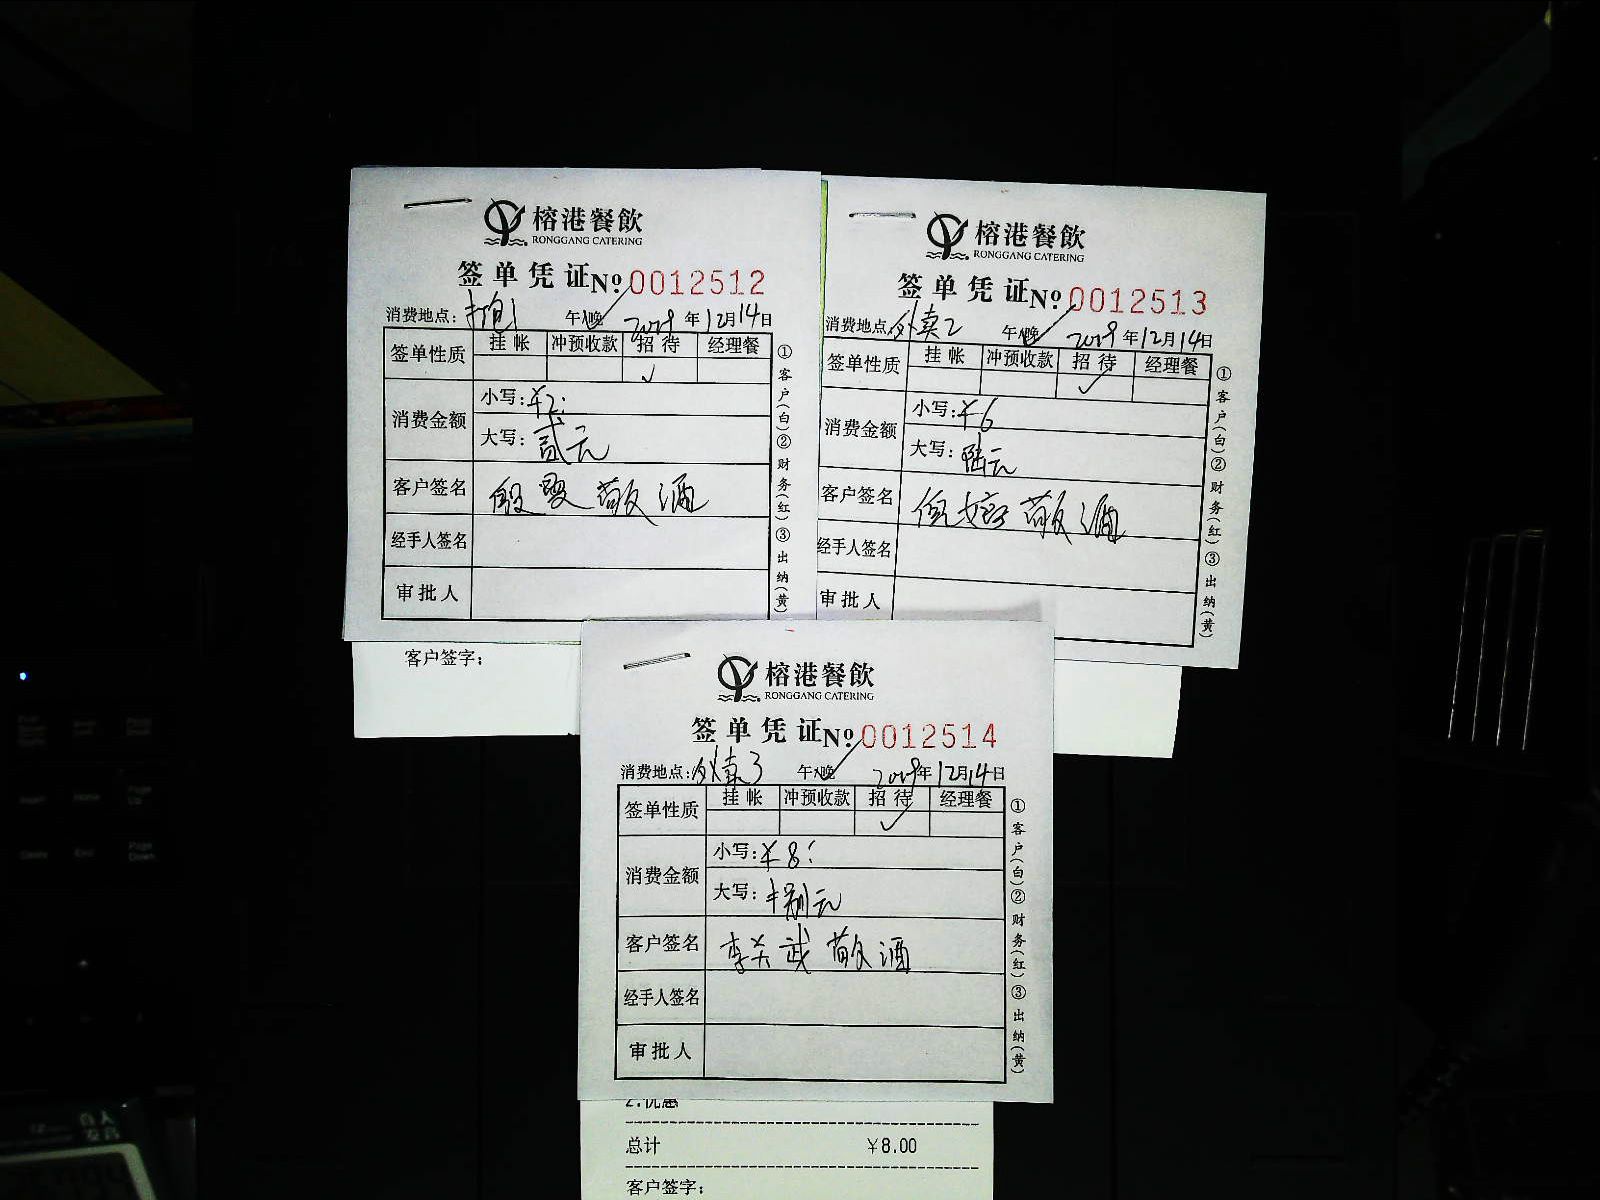 榕港餐飲
RONGGANG CATERING
签单凭证 Nº 0012512
消费地点: 午\晚 2019年12月14日
签单性质 挂帐 冲预收款 招待 经理餐
✓
消费金额 小写:¥2
大写:贰元
客户签名 殷雯 敬酒
经手人签名
审批人
①客户(白)②财务(红)③出纳(黄)
客户签字:
榕港餐飲
RONGGANG CATERING
签单凭证 Nº 0012513
消费地点:外卖2 午\晚 2019年12月14日
签单性质 挂帐 冲预收款 招待 经理餐
✓
消费金额 小写:¥6
大写:陆元
客户签名 敬酒
经手人签名
审批人
①客户(白)②财务(红)③出纳(黄)
榕港餐飲
RONGGANG CATERING
签单凭证 Nº 0012514
消费地点:外卖3 午\晚 2019年12月14日
签单性质 挂帐 冲预收款 招待 经理餐
✓
消费金额 小写:¥8
大写:捌元
客户签名 李关武 敬酒
经手人签名
审批人
①客户(白)②财务(红)③出纳(黄)
2.优惠
总计 ¥8.00
客户签字: